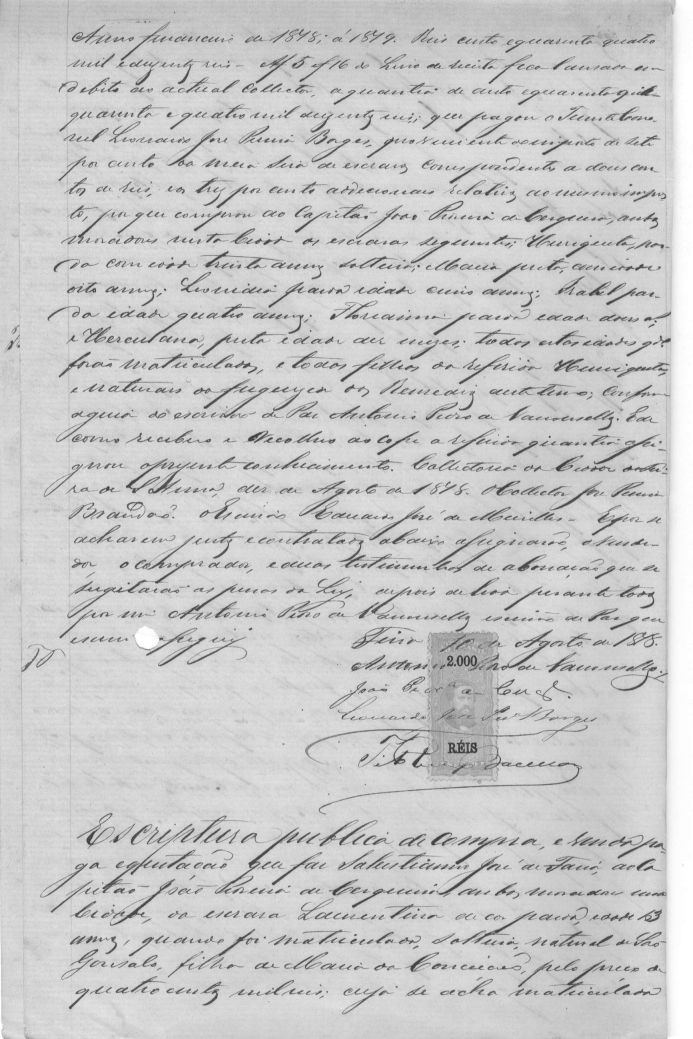 Anno financeiro de 1878, á 1879. Reis cento equarenta quatro
mil eduzentos reis - Af 5 of 16 do Livro de receita fica lansado em
debito ao actual Collector, a quantia de cento equarenta
quarenta e quatro mil duzentos reis, que pagou o Tenente Coro-
nel Leonardo José Pereira Borges, proveniente do imposto de sete
por cento da meia Sisa de escravos Correspondente a dous con-
tos de reis, e os tres por cento addecionais relativos ao mesmo impos-
to, por que comprou ao Capitão João Pereira de Cerqueira, ambos
moradores nesta Cidade os escravos seguintes; par-
da com idade trinta annos solteira; Maria preta, com idade
oito annos; Leonidia parda idade cinco annos; Isabel par-
da idade quatro annos; Florisima parda idade dous
e Herculana, preta idade dez mezes; todos estas idades q'
forão matriculados, e todos filhos da referida
e naturais da freguezia dos Remedios deste termo; Conforme
aguia do escrivão de Paz Antonio Pedro de Vasconsellos. E de
como recebeu e recolheu ao cofre a referida quantia assi-
gnou o prezente conhecimento. Collectoria da Cidade da Fei-
ra de S. Anna, dez de Agosto de 1878. O Collector José Pereira
Brandão. O Escrivão Eduardo José de Meirelles - E por se
acharem justos e contratados abaixo assignarão, o vende-
dor o comprador, e duas testimunhas de abonação que se
sugeitarão as penas da Ley, depois de lida perante todos
por mi Antonio Pedro de Vasconsellos escrivão de Paz que
escrevi e assignei
Feira 10 de Agosto de 1878.
2.000
Antonio Pedro de Vasconsellos
João Per.ª de Cerq.
Leonardo José Per.ª Borges
RÉIS
Escriptura publica de compra, e venda pa-
ga equitação que faz Salustianno José de Faria, ao Ca
pitão João Pereira de Cerqueira, ambos moradores nesta
Cidade, da escrava Laurentina de cor parda, idade 13
annos, quando foi matriculada, solteira, natural de São
Gonsalo, filha de Maria da Conceicão, pelo preco de
quatro centos mil reis; cuja se acha matriculada